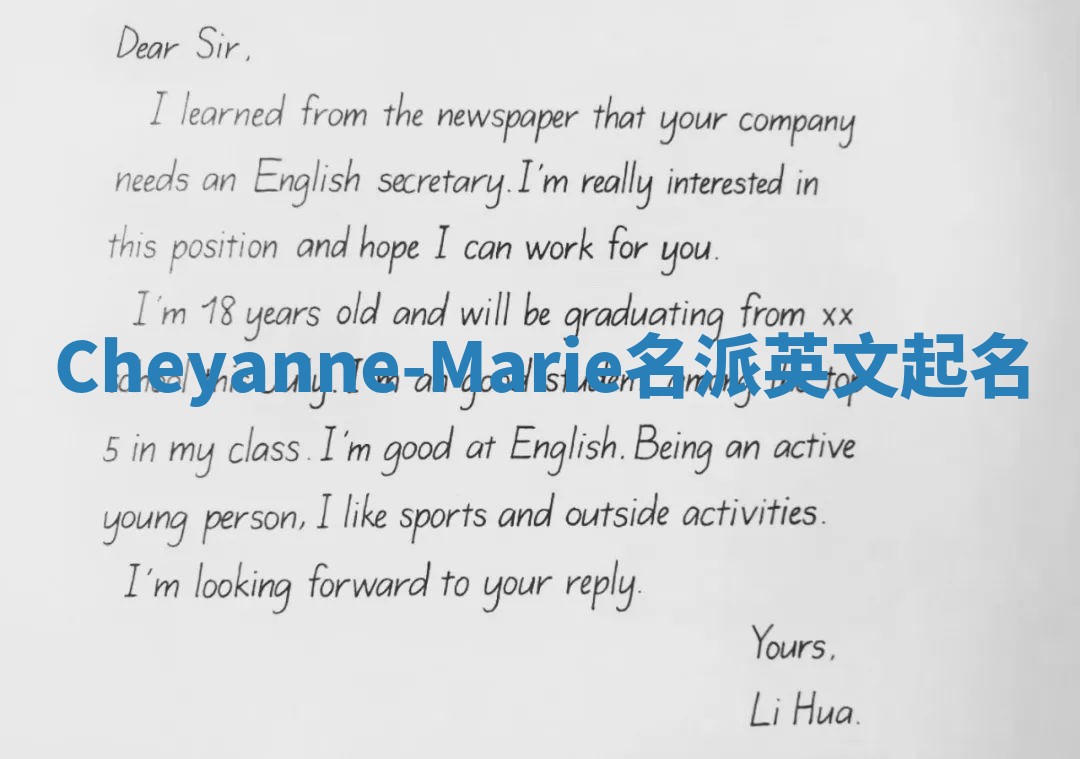 Dear Sir,
I learned from the newspaper that your company
needs an English secretary. I'm really interested in
this position and hope I can work for you.
I'm 18 years old and will be graduating from xx
Cheyanne-Marie名派英文起名
school this July. I'm an good student among the top
5 in my class. I'm good at English. Being an active
young person, I like sports and outside activities.
I'm looking forward to your reply.
Yours,
Li Hua.